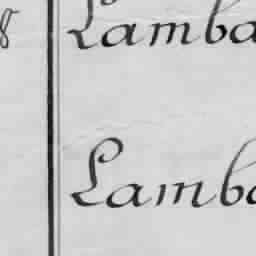 8 Lamba
Lamba